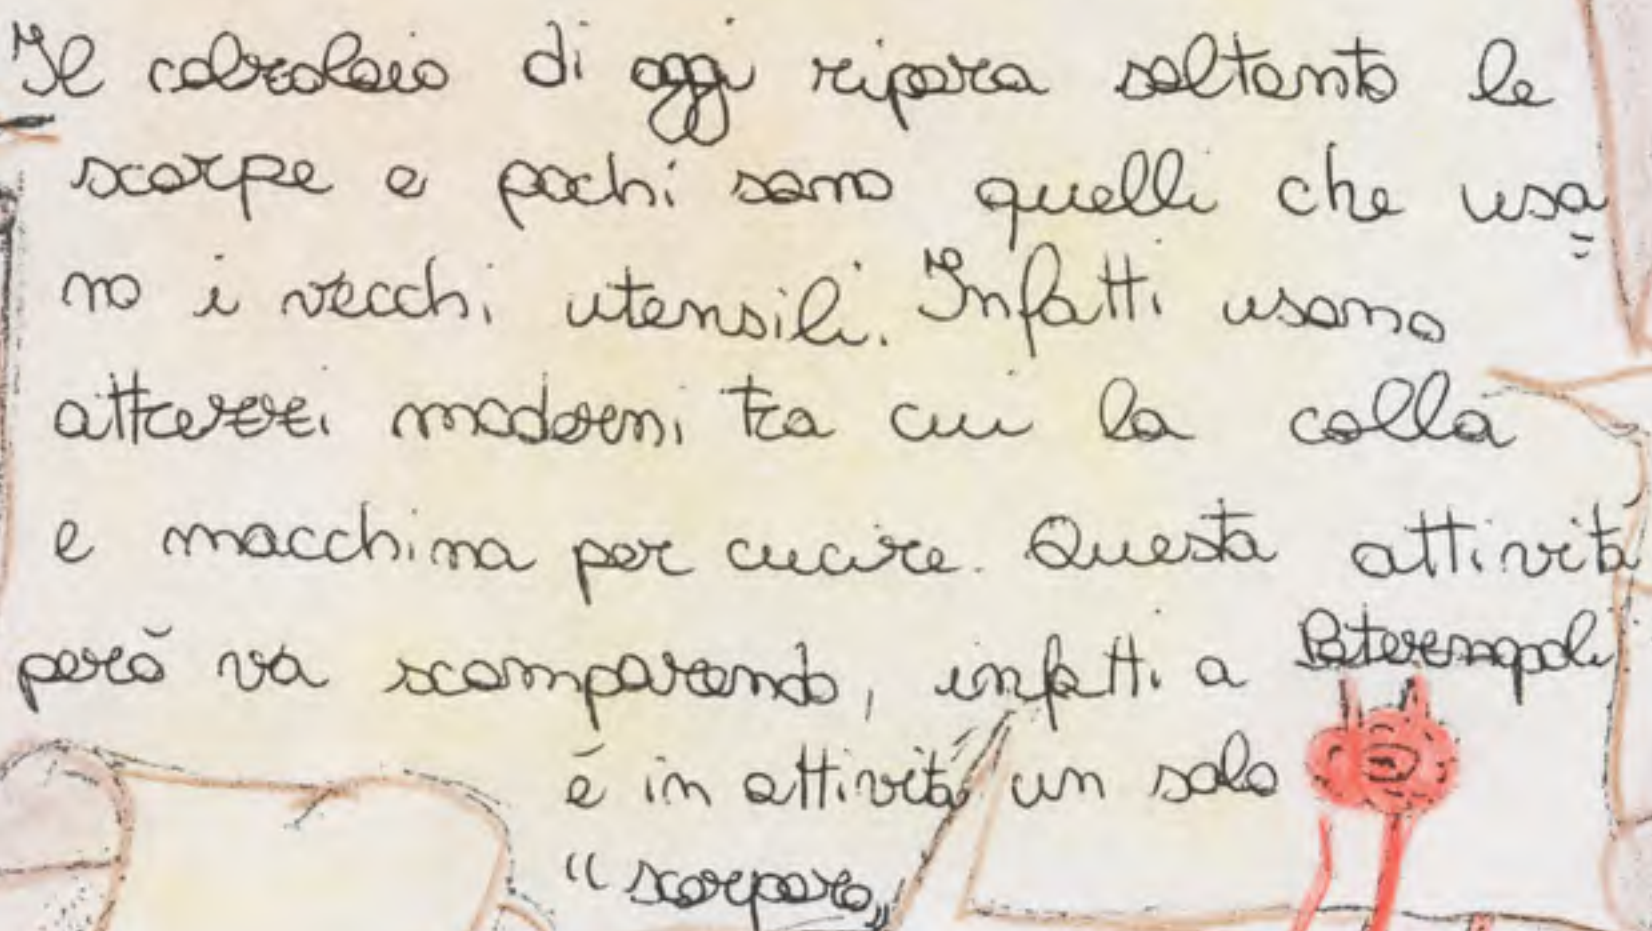 Il calzolaio di oggi ripara soltanto le
scarpe e pochi sono quelli che usa=
no i vecchi utensili. Infatti usano
attrezzi moderni tra cui la colla
e macchina per cucire. Questa attività
però va scomparendo, infatti a Paternopoli
è in attività un solo
"scarparo"